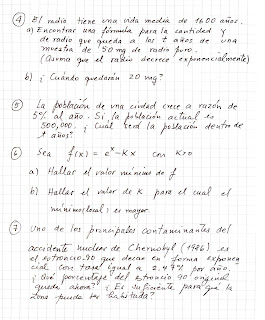 ④ El radio tiene una vida media de 1600 años.
a) Encontrar una fórmula para la cantidad y
de radio que queda a los t años de una
muestra de 50 mg de radio puro.
(Asuma que el radio decrece exponencialmente)
b) ¿Cuándo quedarán 20 mg?
⑤ La población de una ciudad crece a razón de
5% al año. Si la población actual es
500,000. ¿Cuál será la población dentro de
t años?
⑥ Sea f(x) = e^x - Kx con K>0
a) Hallar el valor mínimo de f
b) Hallar el valor de K para el cual el
mínimo local es mayor.
⑦ Uno de los principales contaminantes del
accidente nuclear de Chernobyl (1986) es
el estroncio-90 que decae en forma exponen
cial con tasa igual a 2.47% por año.
¿Qué porcentaje del estroncio 90 original
queda ahora? ¿Es suficiente para que la
zona pueda ser habitada?